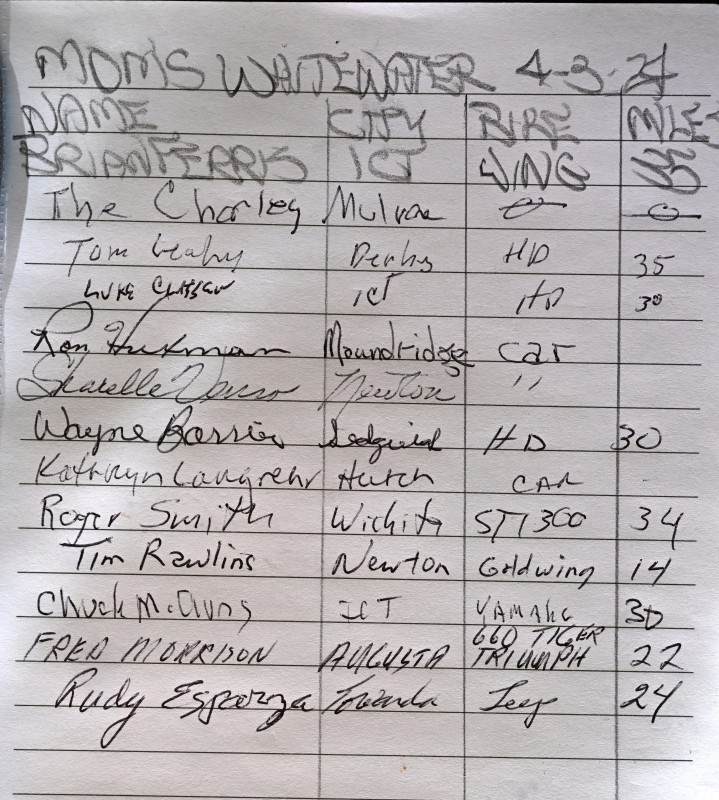 MOM'S WHITEWATER 4-3-24
NAME CITY BIKE MILES
BRIAN FERRIS ICT WING 35
The Charley Mulvane
Tom Leahy Derby HD 35
LUKE CLASSEN ICT HD 30
Ron Huxman Moundridge car
Sharelle Newton "
Wayne Barrier Sedgwick HD 30
Kathryn Langrehr Hutch CAR
Roger Smith Wichita ST1300 34
Tim Rawlins Newton Goldwing 14
Chuck McClung ICT YAMAHA 30
660 TIGER
FRED MORRISON AUGUSTA TRIUMPH 22
Rudy Esparza Towanda Jeep 24